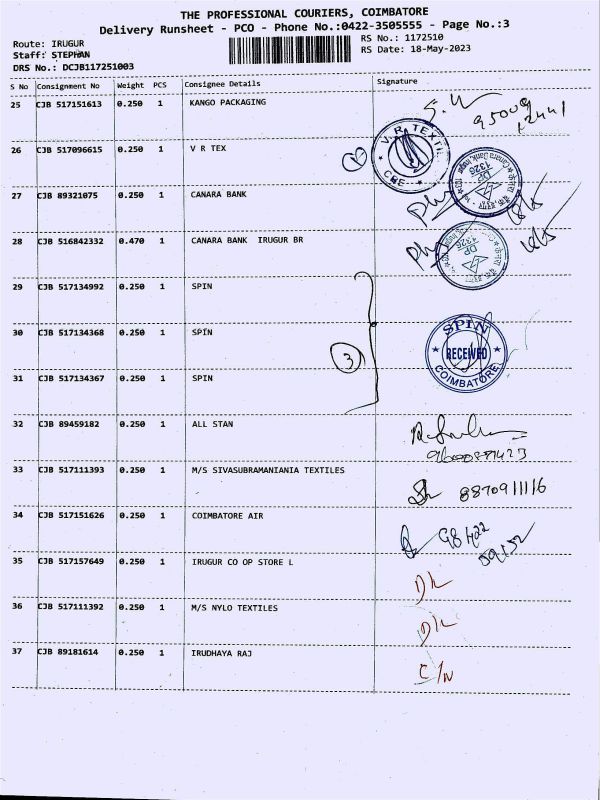 THE PROFESSIONAL COURIERS, COIMBATORE
Delivery Runsheet - PCO - Phone No.:0422-3505555 - Page No.:3
Route: IRUGUR
RS No.: 1172510
Staff: STEPHAN
RS Date: 18-May-2023
DRS No.: DCJB117251003
S No Consignment No Weight PCS Consignee Details Signature
25 CJB 517151613 0.250 1 KANGO PACKAGING
26 CJB 517096615 0.250 1 V R TEX
V. R. TEXTIL
CBE
27 CJB 89321075 0.250 1 CANARA BANK
DP
1326
28 CJB 516842332 0.470 1 CANARA BANK IRUGUR BR
DP
1326
29 CJB 517134992 0.250 1 SPIN
30 CJB 517134368 0.250 1 SPIN
3
SPIN
RECEIVED
COIMBATORE
31 CJB 517134367 0.250 1 SPIN
32 CJB 89459182 0.250 1 ALL STAN
33 CJB 517111393 0.250 1 M/S SIVASUBRAMANIANIA TEXTILES
8870911116
34 CJB 517151626 0.250 1 COIMBATORE AIR
98422
59152
35 CJB 517157649 0.250 1 IRUGUR CO OP STORE L
D/L
36 CJB 517111392 0.250 1 M/S NYLO TEXTILES
D/L
37 CJB 89181614 0.250 1 IRUDHAYA RAJ
C/N